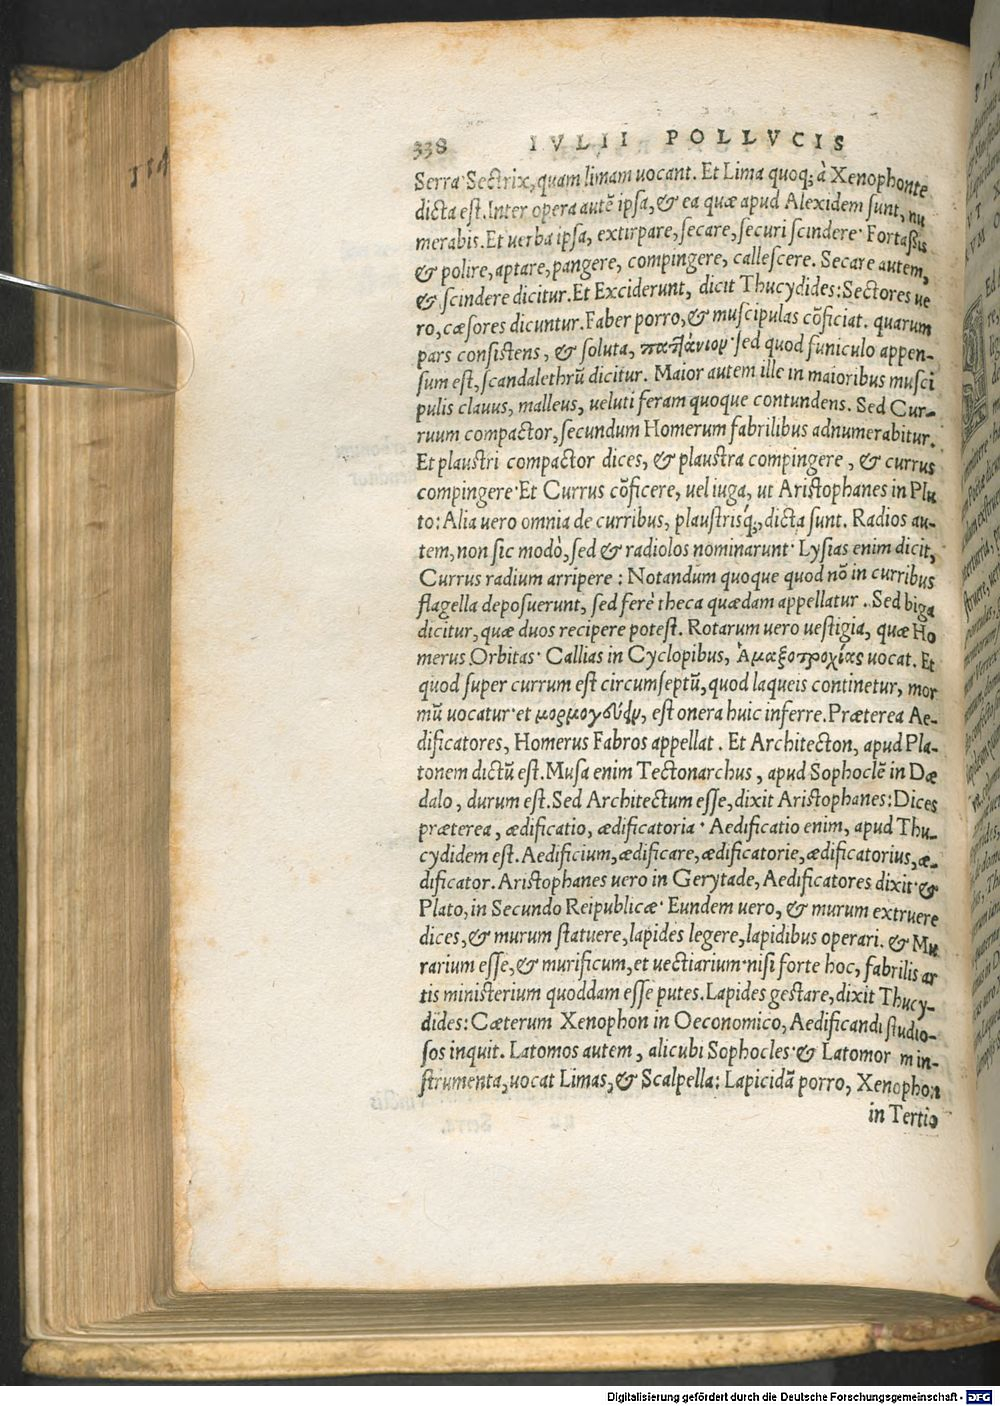 114
338 IVLII POLLVCIS
Serra Sectrix, quam limam uocant. Et Lima quoq; à Xenophonte
dicta est. Inter opera autē ipsa, & ea quæ apud Alexidem sunt, nu
merabis. Et uerba ipsa, extirpare, secare, securi scindere. Fortaßis
& polire, aptare, pangere, compingere, callescere. Secare autem,
& scindere dicitur. Et Exciderunt, dicit Thucydides: Sectores ue
ro, cæsores dicuntur. Faber porro, & muscipulas cōficiat. quarum
pars consistens, & soluta, sed quod funiculo appen-
sum est, scandalethrū dicitur. Maior autem ille in maioribus musci
pulis clauus, malleus, ueluti feram quoque contundens. Sed Cur-
ruum compactor, secundum Homerum fabrilibus adnumerabitur.
Et plaustri compactor dices, & plaustra compingere, & currus
compingere. Et Currus cōficere, uel iuga, ut Aristophanes in Plu
to: Alia uero omnia de curribus, plaustrisq;, dicta sunt. Radios au-
tem, non sic modò, sed & radiolos nominarunt. Lysias enim dicit,
Currus radium arripere: Notandum quoque quod nō in curribus
flagella deposuerunt, sed ferè theca quædam appellatur. Sed biga
dicitur, quæ duos recipere potest. Rotarum uero uestigia, quæ Ho
merus Orbitas. Callias in Cyclopibus, Ἁμαξοτροχίας uocat. Et
quod super currum est circumseptū, quod laqueis continetur, mor
mū uocatur. et est onera huic inferre. Præterea Ae-
dificatores, Homerus Fabros appellat. Et Architecton, apud Pla-
tonem dictū est. Musa enim Tectonarchus, apud Sophoclē in Dæ
dalo, durum est. Sed Architectum esse, dixit Aristophanes: Dices
præterea, ædificatio, ædificatoria. Aedificatio enim, apud Thu-
cydidem est. Aedificium, ædificare, ædificatorie, ædificatorius, æ-
dificator. Aristophanes uero in Gerytade, Aedificatores dixit. &
Plato, in Secundo Reipublicæ. Eundem uero, & murum extruere
dices, & murum statuere, lapides legere, lapidibus operari. & Mu
rarium esse, & murificum, et uectiarium. nisi forte hoc, fabrilis ar
tis ministerium quoddam esse putes. Lapides gestare, dixit Thucy-
dides: Cæterum Xenophon in Oeconomico, Aedificandi studio-
sos inquit. Latomos autem, alicubi Sophocles. & Latomor m in-
strumenta, uocat Limas, & Scalpella: Lapicidā porro, Xenophon
in Tertio
Digitalisierung gefördert durch die Deutsche Forschungsgemeinschaft - DFG